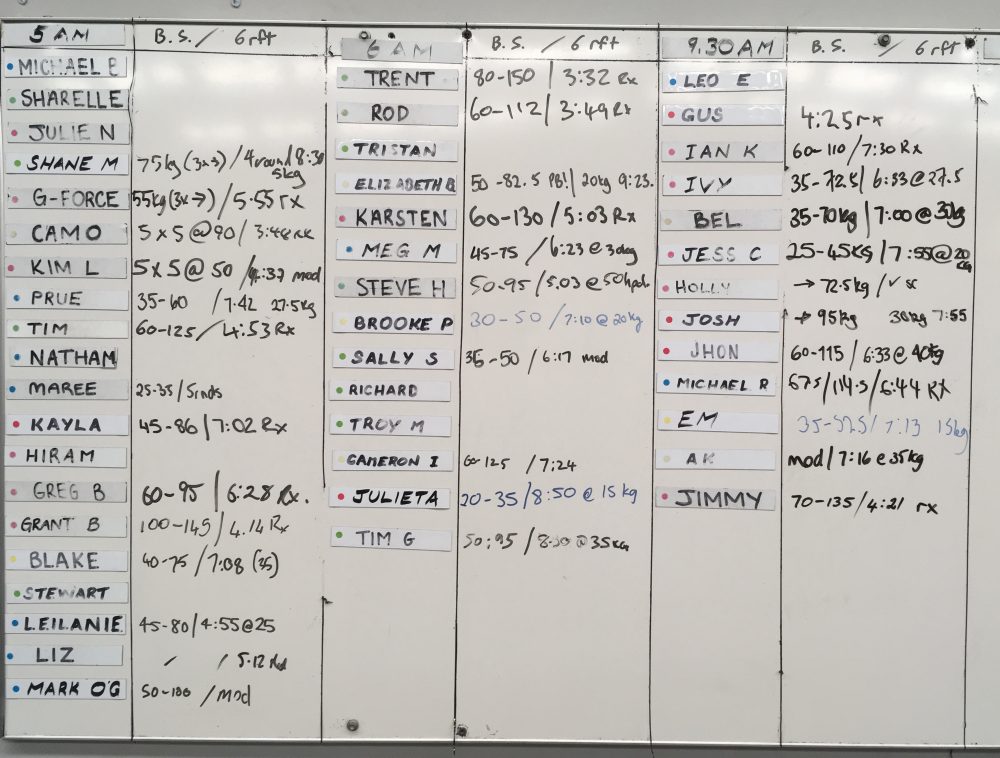 5 AM B.S. / 6 rft
MICHAEL B
SHARELLE
JULIE N
SHANE M 75kg (3x3) / 4 round 8:30
5kg
G-FORCE 55kg (3x→) / 5:55 rx
CAMO 5x5 @ 90 / 3:48 RX
KIM L 5x5 @ 50 / :37 mod
PRUE 35-60 / 7:42 27.5kg
TIM 60-125 / 4:53 Rx
NATHAN
MAREE 25-35 / 5rnds
KAYLA 45-86 / 7:02 Rx
HIRAM
GREG B 60-95 / 6:28 Rx.
GRANT B 100-145 / 4.14 Rx
BLAKE 40-75 / 7:08 (35)
STEWART
LEILANIE 45-80 / 4:55@25
LIZ / / 5.12
MARK O'G 50-100 / mod
6 AM B.S. / 6 rft
TRENT 80-150 / 3:32 Rx
ROD 60-112 / 3:49 Rx
TRISTAN
ELIZABETH B 50-82.5 PB! / 20kg 9:23.
KARSTEN 60-130 / 5:03 Rx
MEG M 45-75 / 6:23 @ 30kg
STEVE H 50-95 / 5.03 @ 50kg
BROOKE P 30-50 / 7:10 @ 20kg
SALLY S 35-50 / 6:17 mod
RICHARD
TROY M
CAMERON I 60-125 / 7:24
JULIETA 20-35 / 8:50 @ 15 kg
TIM G 50:95 / 8:50 @ 35kg
9.30 AM B.S. / 6 rft
LEO E
GUS 4:25 rx
IAN K 60-110 / 7:30 Rx
IVY 35-72.5 / 6:33 @ 27.5
BEL 35-70kg / 7:00 @ 30kg
JESS C 25-45KG / 7:55 @ 20
KG
HOLLY → 72.5kg / ✓ sc
JOSH → 95kg 30kg 7:55
JHON 60-115 / 6:33 @ 40kg
MICHAEL R 67.5 / 114.5 / 6:44 RX
EM 35-52.5 / 7:13 15kg
AK mod / 7:16 @ 35kg
JIMMY 70-135 / 4:21 rx